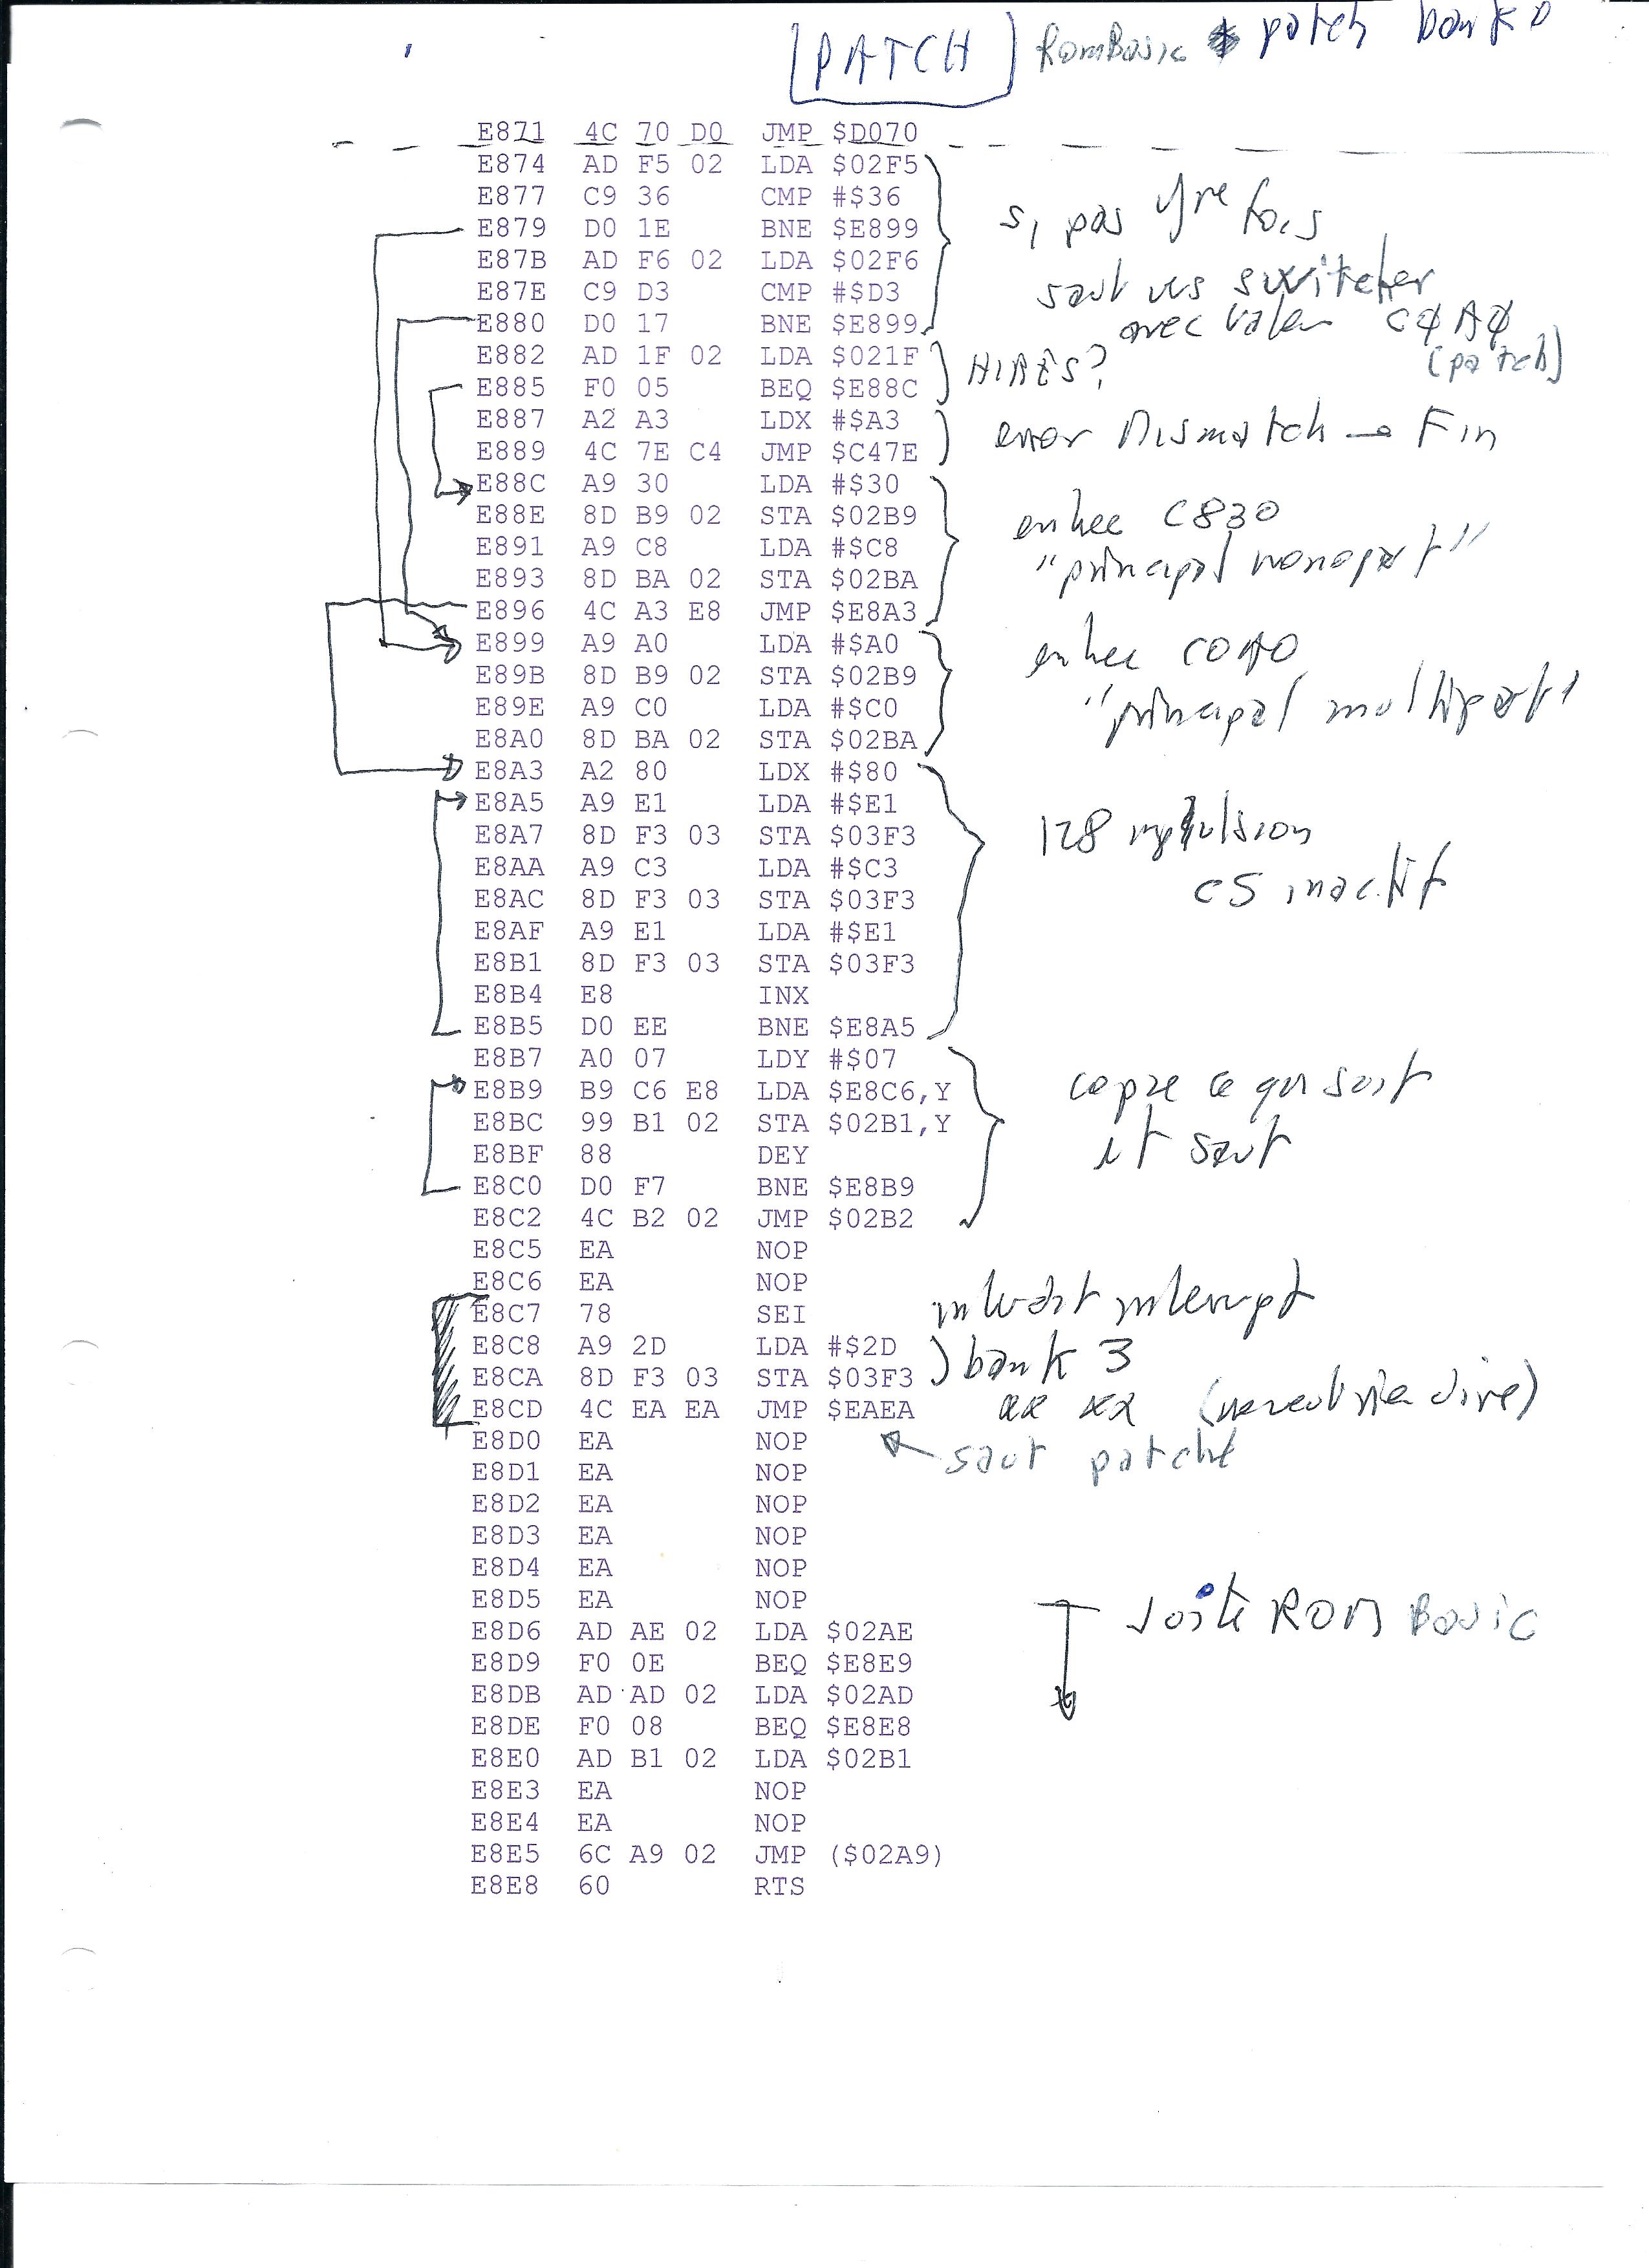 [PATCH] RomBasic patch bank 0
E871 4C 70 D0 JMP $D070
E874 AD F5 02 LDA $02F5
E877 C9 36 CMP #$36
si pas 1re fois
E879 D0 1E BNE $E899
E87B AD F6 02 LDA $02F6
saut vers switcher
E87E C9 D3 CMP #$D3
E880 D0 17 BNE $E899
avec valeur C0A0
(patch)
E882 AD 1F 02 LDA $021F
HIRES?
E885 F0 05 BEQ $E88C
E887 A2 A3 LDX #$A3
error Mismatch → Fin
E889 4C 7E C4 JMP $C47E
E88C A9 30 LDA #$30
entree C830
E88E 8D B9 02 STA $02B9
E891 A9 C8 LDA #$C8
"principal monopart"
E893 8D BA 02 STA $02BA
E896 4C A3 E8 JMP $E8A3
E899 A9 A0 LDA #$A0
entree C0A0
E89B 8D B9 02 STA $02B9
E89E A9 C0 LDA #$C0
"principal multipart"
E8A0 8D BA 02 STA $02BA
E8A3 A2 80 LDX #$80
E8A5 A9 E1 LDA #$E1
E8A7 8D F3 03 STA $03F3
128 impulsion
E8AA A9 C3 LDA #$C3
CS inactif
E8AC 8D F3 03 STA $03F3
E8AF A9 E1 LDA #$E1
E8B1 8D F3 03 STA $03F3
E8B4 E8 INX
E8B5 D0 EE BNE $E8A5
E8B7 A0 07 LDY #$07
E8B9 B9 C6 E8 LDA $E8C6,Y
copie ce qui suit
E8BC 99 B1 02 STA $02B1,Y
et saut
E8BF 88 DEY
E8C0 D0 F7 BNE $E8B9
E8C2 4C B2 02 JMP $02B2
E8C5 EA NOP
E8C6 EA NOP
E8C7 78 SEI
interdit interrupt
E8C8 A9 2D LDA #$2D
bank 3
E8CA 8D F3 03 STA $03F3
E8CD 4C EA EA JMP $EAEA
E8D0 EA NOP
saut patché
E8D1 EA NOP
E8D2 EA NOP
E8D3 EA NOP
E8D4 EA NOP
E8D5 EA NOP
suite ROM Basic
E8D6 AD AE 02 LDA $02AE
E8D9 F0 0E BEQ $E8E9
E8DB AD AD 02 LDA $02AD
E8DE F0 08 BEQ $E8E8
E8E0 AD B1 02 LDA $02B1
E8E3 EA NOP
E8E4 EA NOP
E8E5 6C A9 02 JMP ($02A9)
E8E8 60 RTS